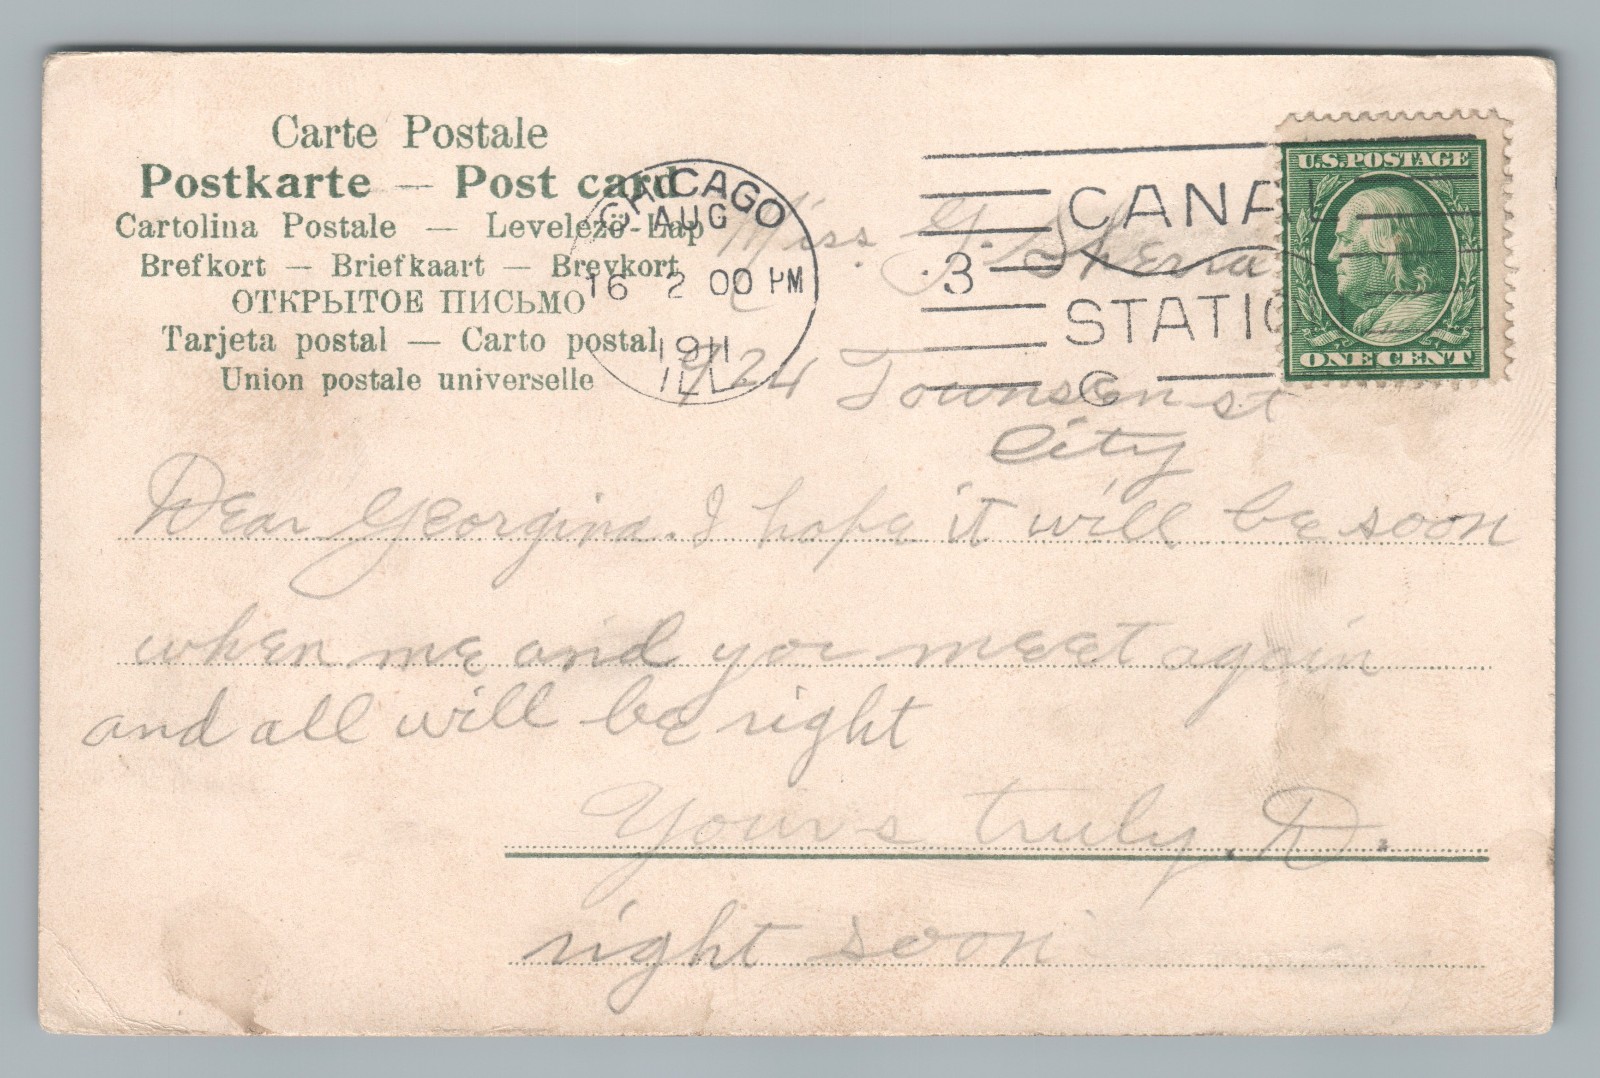 Carte Postale
Postkarte — Post card
Cartolina Postale — Levelező-Lap
Brefkort — Briefkaart — Brevkort
ОТКРЫТОЕ ПИСЬМО
Tarjeta postal — Carto postal
Union postale universelle
CHICAGO
AUG
16 2 00 PM
1911
ILL
CANAL
3
STATIO
C
U.S.POSTAGE
ONE CENT
Miss G.
924 Townsen st
City
Dear Georgina. I hope it will be soon
when me and you meet again
and all will be right
Yours truly. D.
right soon